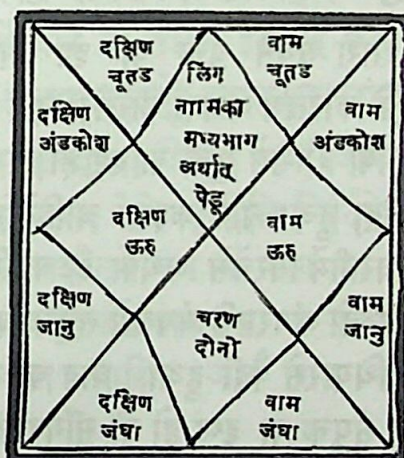 दक्षिण
चूतड
वाम
चूतड
लिंग
नामका
मध्यभाग
अर्थात्
पेडू
दक्षिण
अंडकोश
वाम
अंडकोश
दक्षिण
ऊरु
वाम
ऊरु
दक्षिण
जानु
वाम
जानु
चरण
दोनो
दक्षिण
जंघा
वाम
जंघा